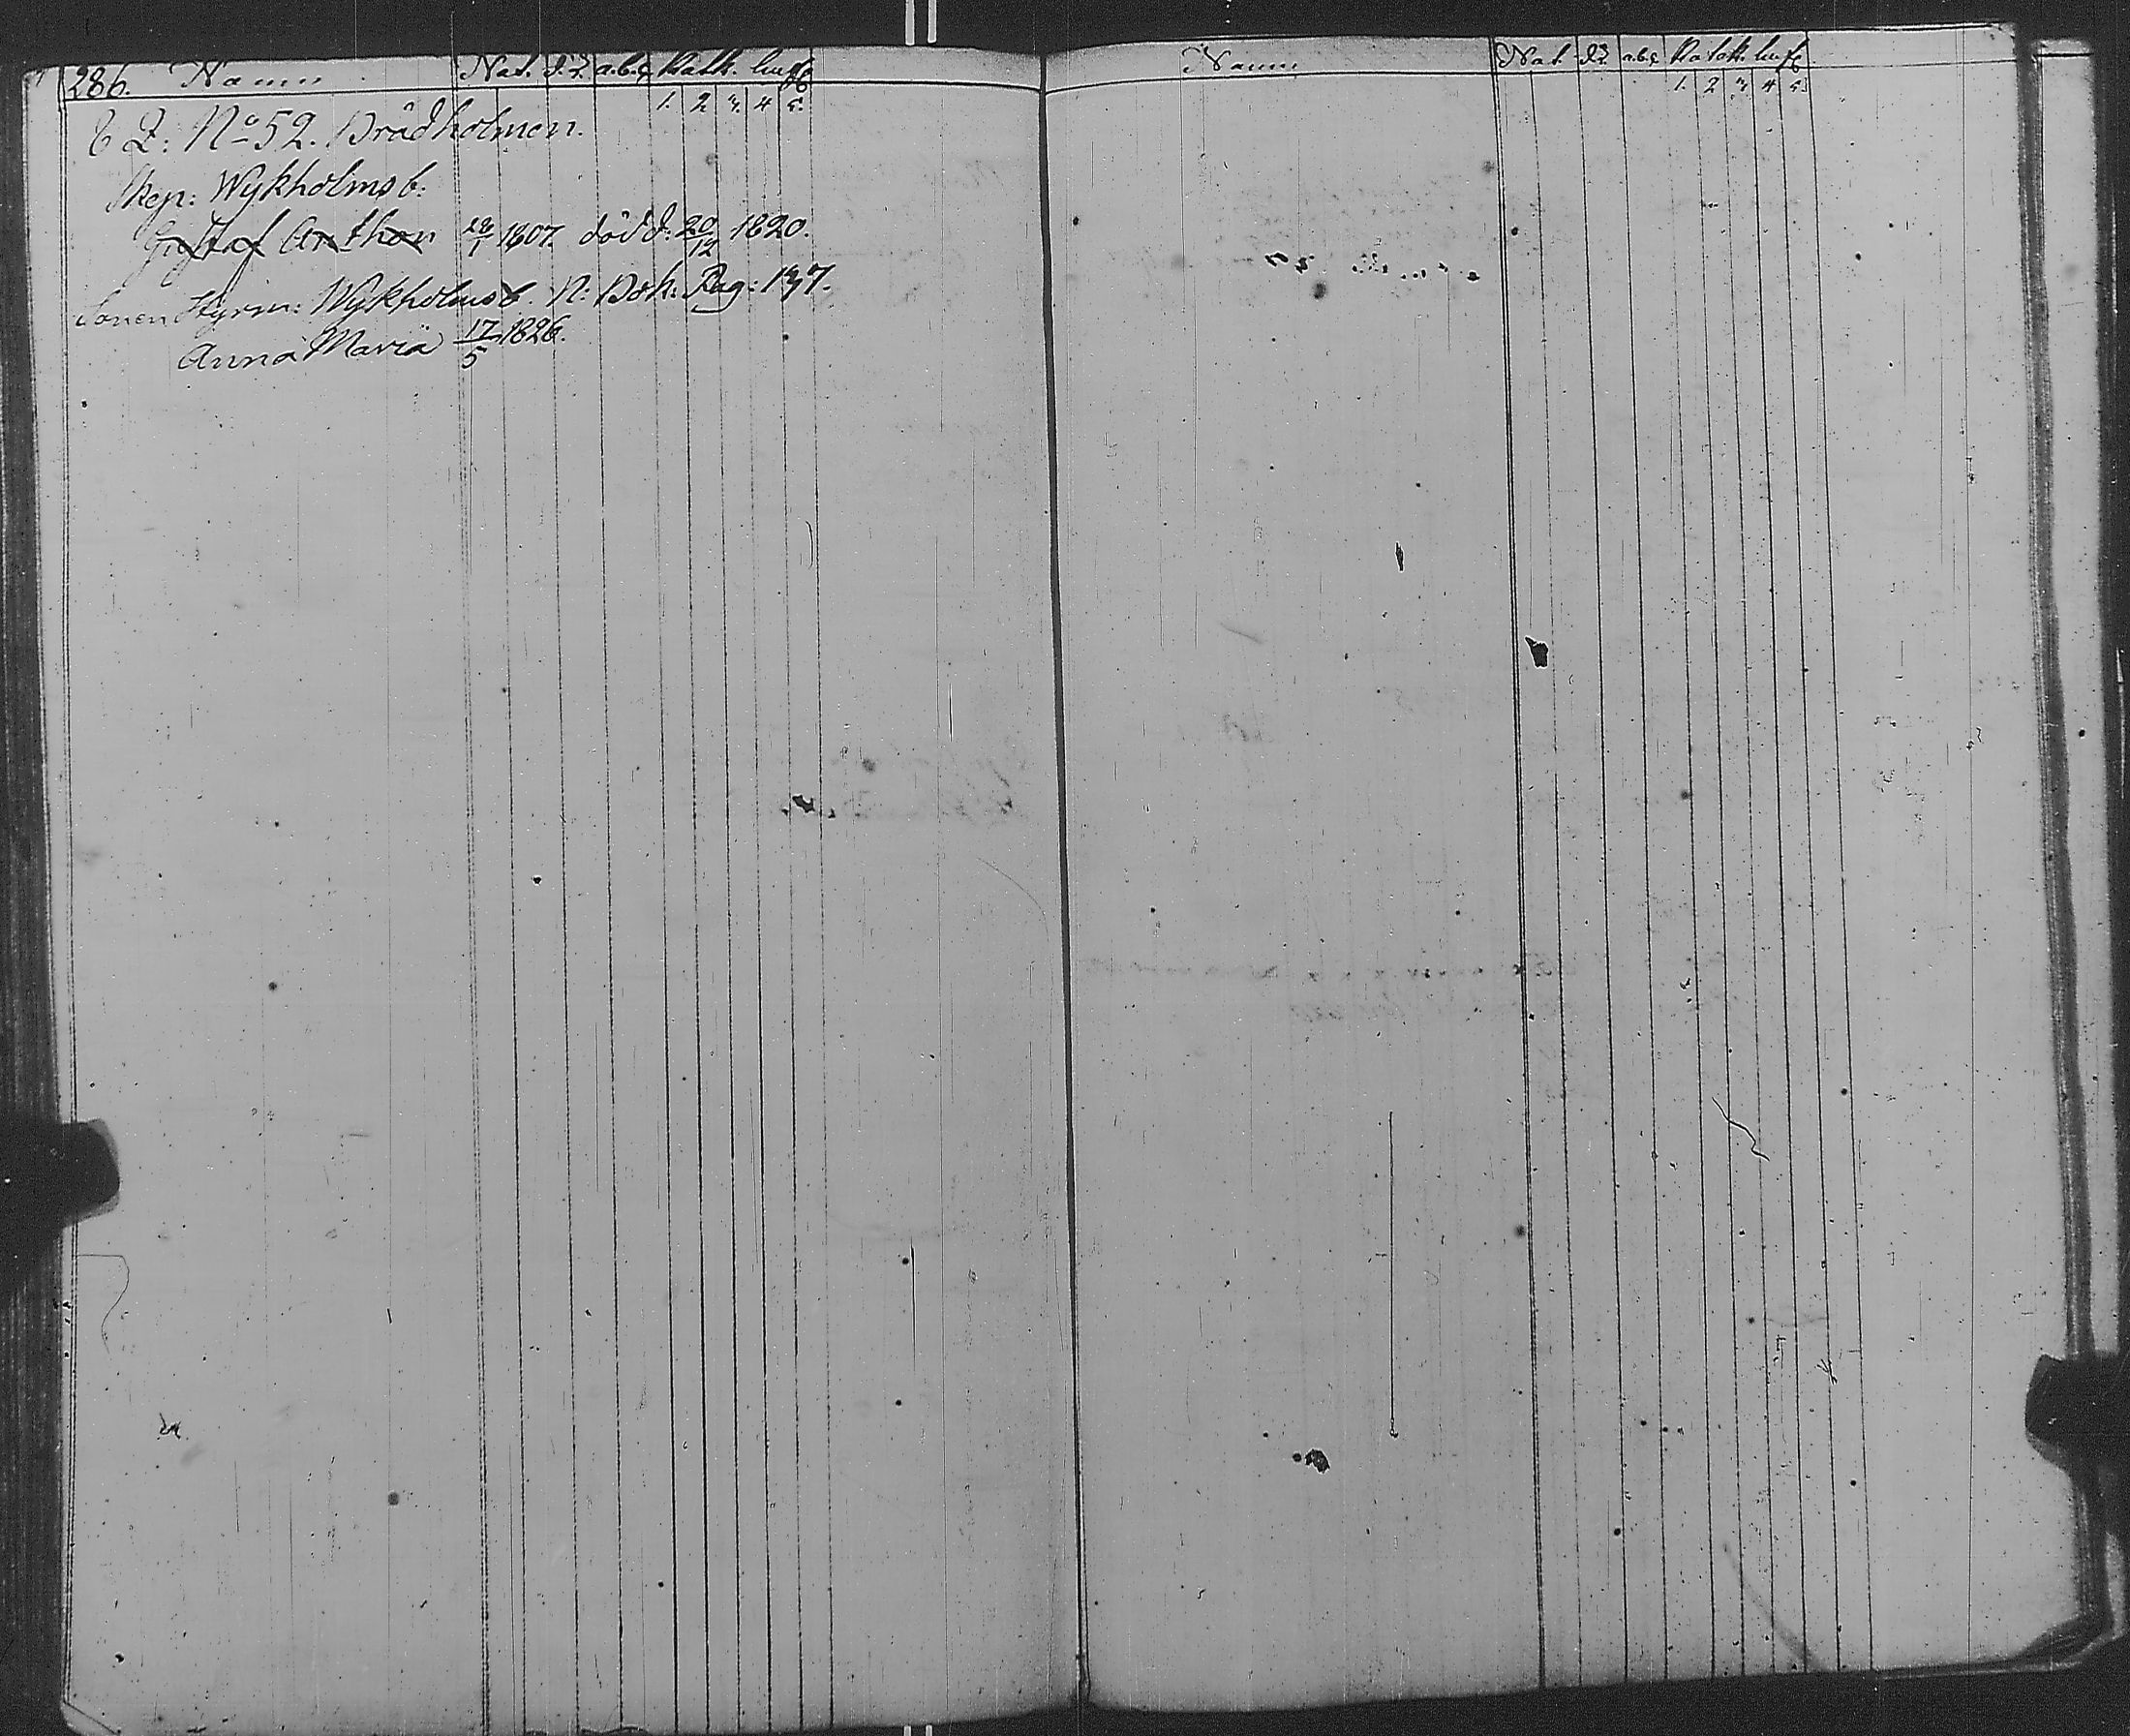 286. Namn Nat. a.b.c. Katk. hufs
1. 2. 3. 4. 5.
No 52. Brådholmen.
Skep: Wykholms b:
Gustaf Anthon 28/1 1807. död d: 20/12 1820.
Sonen Styrm: Wykholms b. N: Bok: Pag: 137.
Anna Maria 17/5 1826.
Namn Nat. a.b.c. Katk. hufs
1. 2. 3. 4. 5.